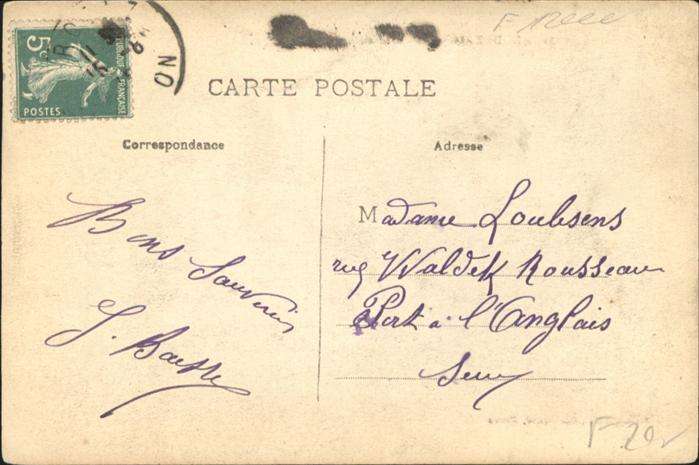 5c
RÉPUBLIQUE FRANÇAISE
POSTES
CARTE POSTALE
Correspondance
Adresse
Bons Souvenirs
Madame Loubsens
rue Waldek Rousseau
Port à l'Anglais
Seine